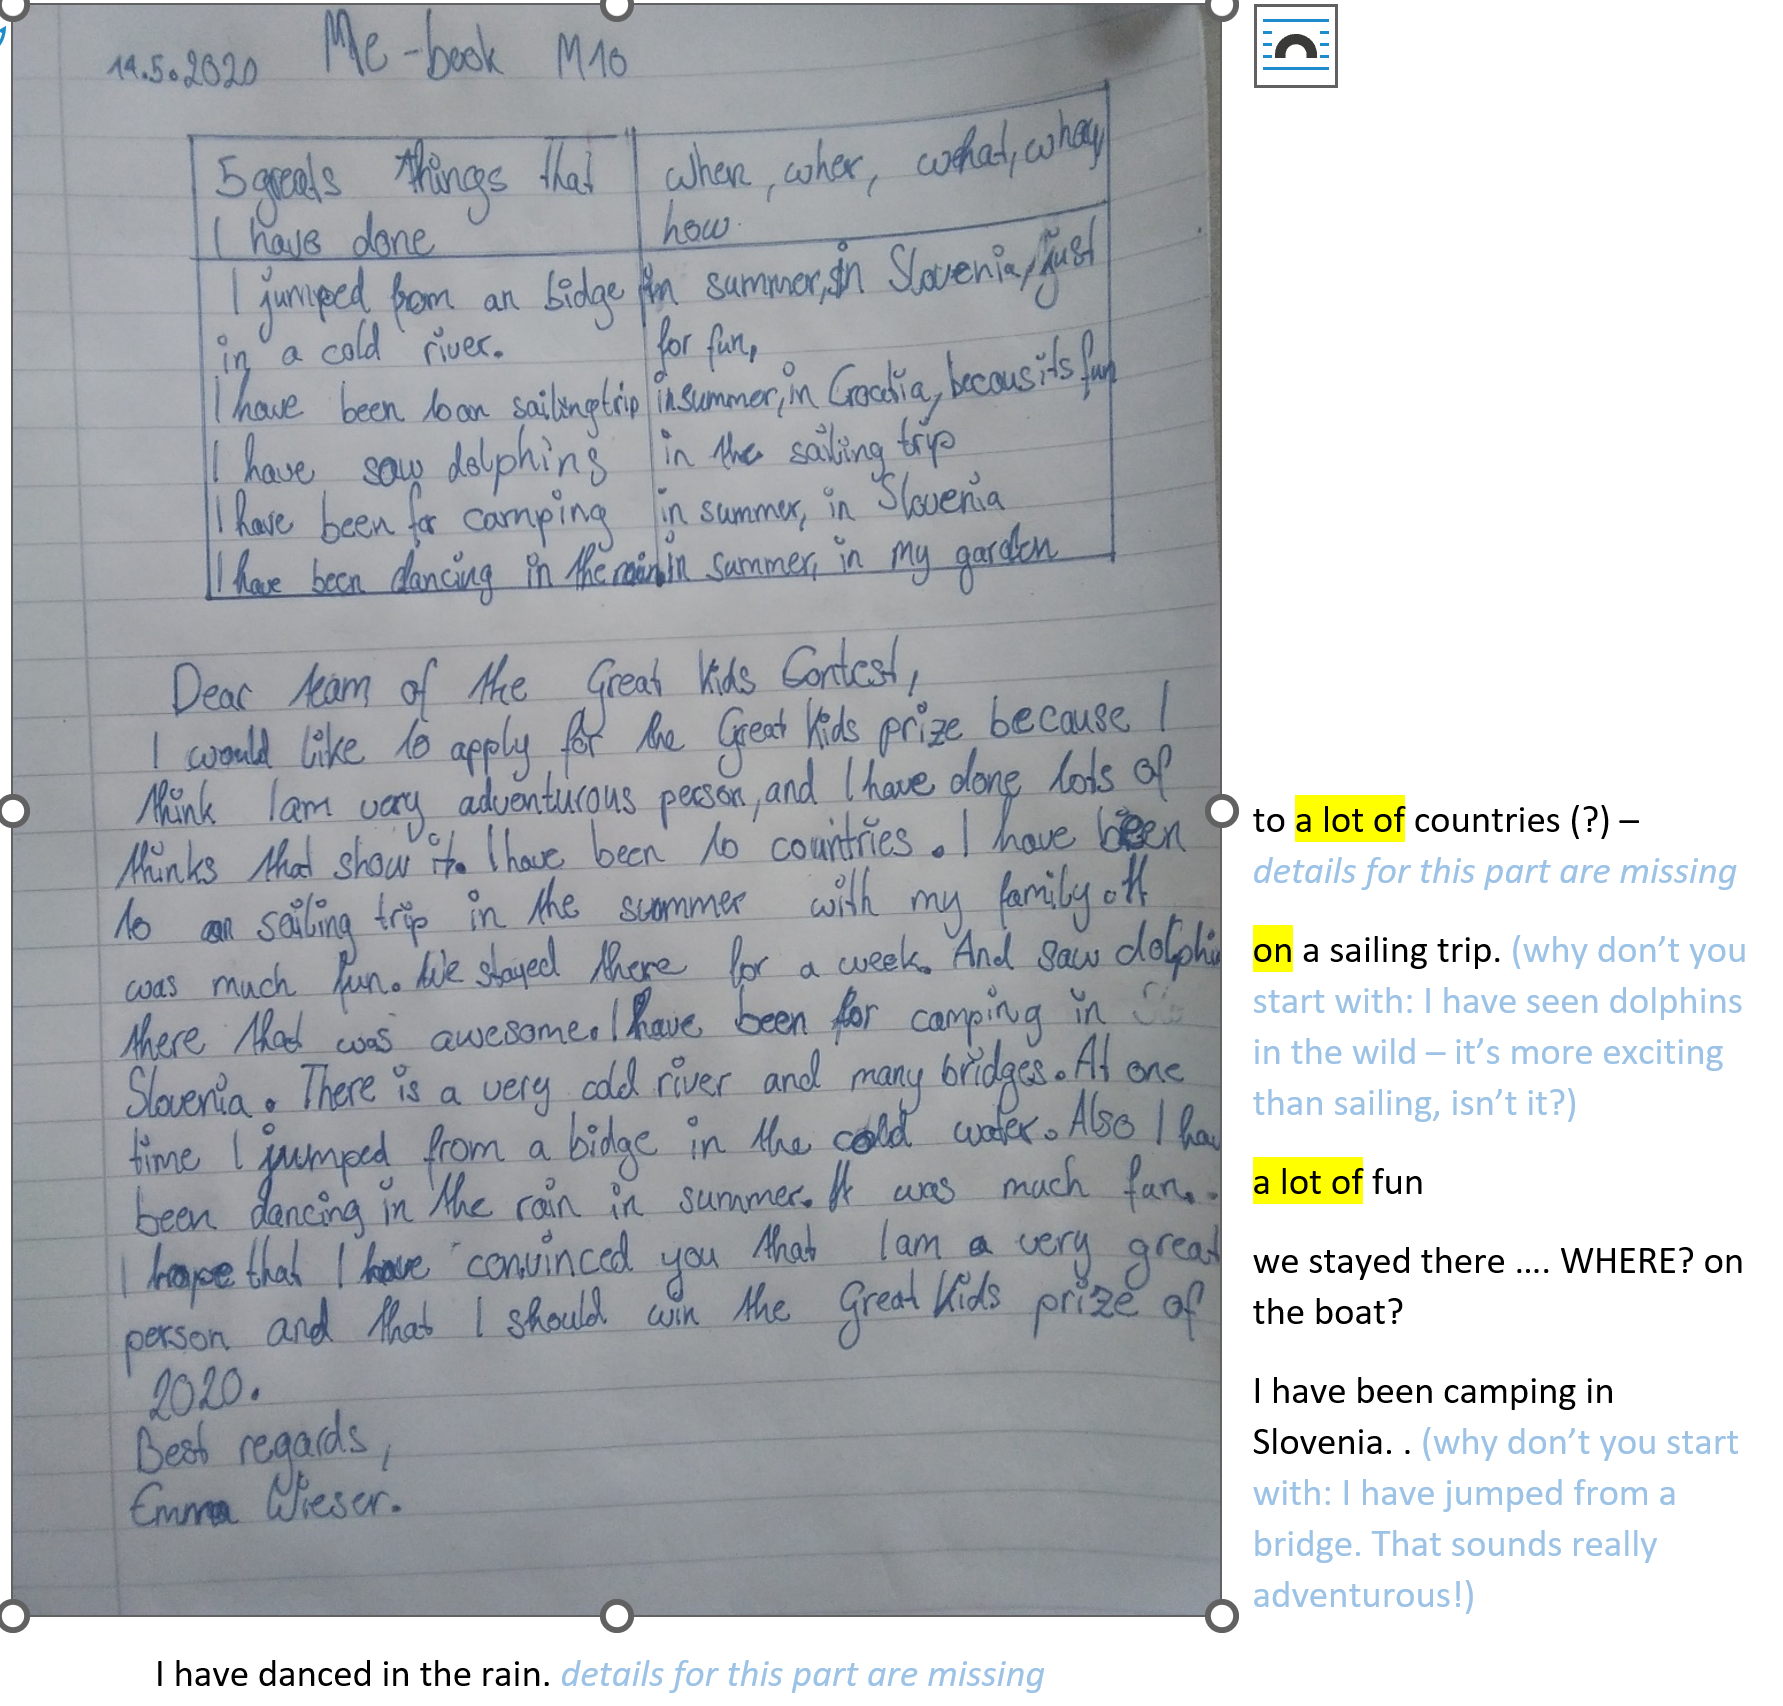 14.5.2020 Me-book M10
5 greats things that
I have done
when, wher, what, whay
how.
I jumped from an bidge
in a cold river.
in summer, in Slovenia, just
for fun,
I have been to an sailingtrip
in summer, in Croatia, becous its fun
I have saw dolphins
in the sailing trip
I have been for camping
in summer, in Slovenia
I have been dancing in the rain
in summer, in my garden
Dear team of the Great Kids Contest,
I would like to apply for the Great Kids prize because I
think I am very adventurous person, and I have done lots of
thinks that show it. I have been to countries. I have been
to an sailing trip in the summer with my family. It
was much fun. We stayed there for a week. And saw dolphin
there that was awesome. I have been for camping in
Slovenia. There is a very cold river and many bridges. At one
time I jumped from a bidge in the cold water. Also I hav
been dancing in the rain in summer. It was much fun.
I hope that I have convinced you that I am a very great
person and that I should win the Great Kids prize of
2020.
Best regards,
Emma Wieser.
to a lot of countries (?) –
details for this part are missing
on a sailing trip. (why don't you
start with: I have seen dolphins
in the wild – it's more exciting
than sailing, isn't it?)
a lot of fun
we stayed there .... WHERE? on
the boat?
I have been camping in
Slovenia. . (why don't you start
with: I have jumped from a
bridge. That sounds really
adventurous!)
I have danced in the rain. details for this part are missing